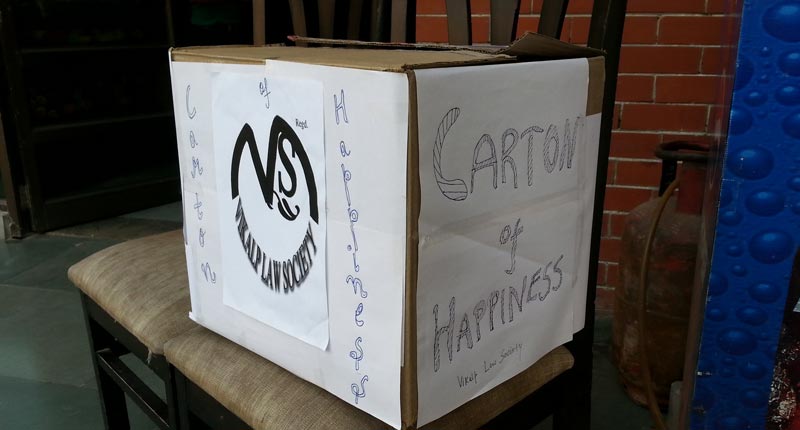 Carton
of
Happiness
Regd.
VS
VIKALP LAW SOCIETY
CARTON
of
HAPPINESS
Vikalp Law Society